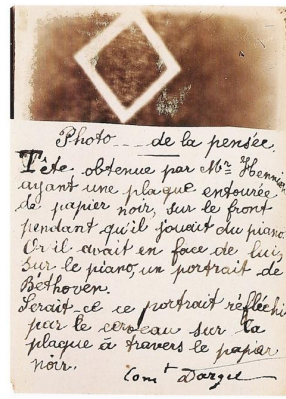 Photo__ _de la pensée.
Tête, obtenue par Mr Hennion
ayant une plaque entourée
de papier noir, sur le front
pendant qu'il jouait du piano
Or il avait en face de lui,
sur le piano, un portrait de
Béthoven.
Serait-ce ce portrait réfléchi
par le cerveau sur la
plaque à travers le papier
noir.
Comt Darget